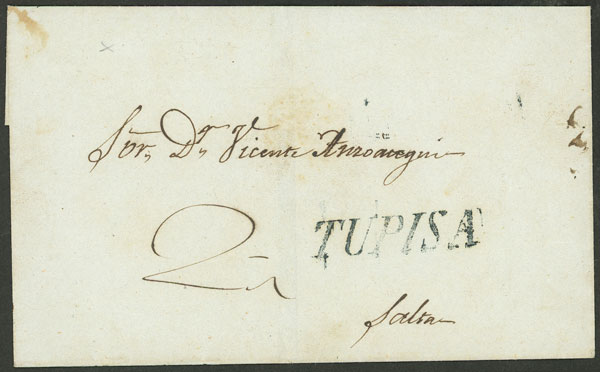 Sor. Dn. Vicente Anzoategui
2
TUPISA
Salta